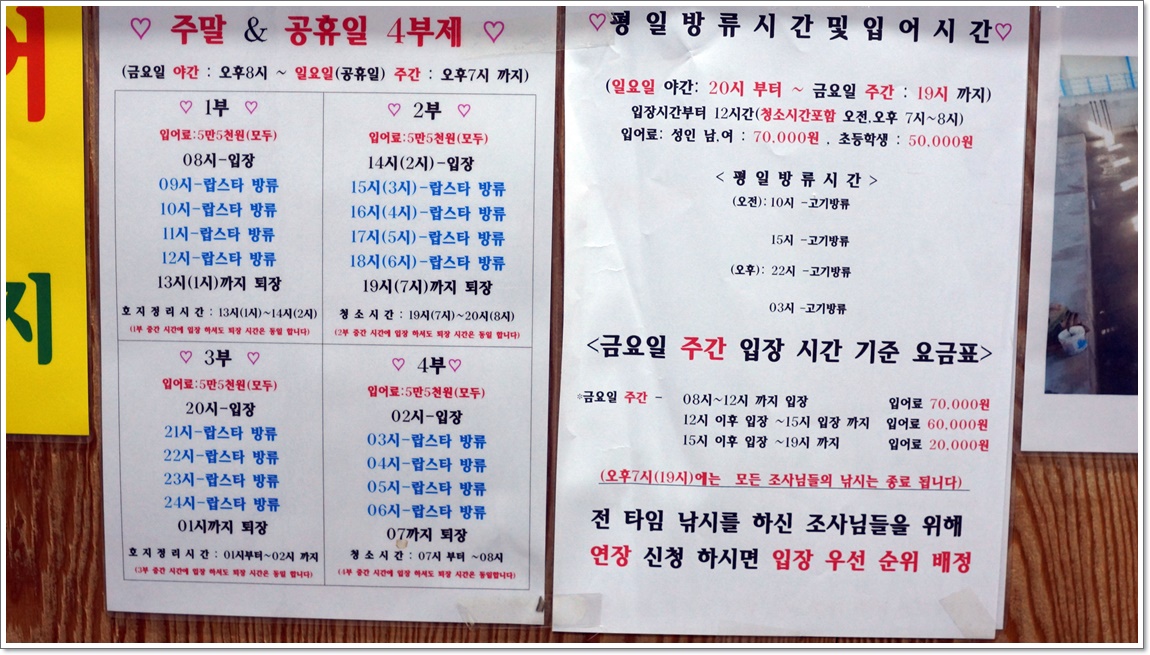 어
지
♡ 주말 & 공휴일 4부제 ♡
(금요일 야간 : 오후8시 ~ 일요일(공휴일) 주간 : 오후7시 까지)
♡ 1부 ♡
입어료:5만5천원(모두)
08시-입장
09시-랍스타 방류
10시-랍스타 방류
11시-랍스타 방류
12시-랍스타 방류
13시(1시)까지 퇴장
호지정리시간 : 13시(1시)~14시(2시)
(1부 중간 시간에 입장 하셔도 퇴장 시간은 동일 합니다)
♡ 2부 ♡
입어료:5만5천원(모두)
14시(2시)-입장
15시(3시)-랍스타 방류
16시(4시)-랍스타 방류
17시(5시)-랍스타 방류
18시(6시)-랍스타 방류
19시(7시)까지 퇴장
청소시간 : 19시(7시)~20시(8시)
(2부 중간 시간에 입장 하셔도 퇴장 시간은 동일 합니다)
♡ 3부 ♡
입어료:5만5천원(모두)
20시-입장
21시-랍스타 방류
22시-랍스타 방류
23시-랍스타 방류
24시-랍스타 방류
01시까지 퇴장
호지정리시간 : 01시부터~02시 까지
(3부 중간 시간에 입장 하셔도 퇴장 시간은 동일합니다)
♡ 4부♡
입어료:5만5천원(모두)
02시-입장
03시-랍스타 방류
04시-랍스타 방류
05시-랍스타 방류
06시-랍스타 방류
07까지 퇴장
청소시간 : 07시 부터 ~08시
(4부 중간 시간에 입장 하셔도 퇴장 시간은 동일합니다)
♡평일방류시간및입어시간♡
(일요일 야간: 20시 부터 ~ 금요일 주간 : 19시 까지)
입장시간부터 12시간(청소시간포함 오전.오후 7시~8시)
입어료: 성인 남.여 : 70.000원 . 초등학생 : 50.000원
< 평일방류시간 >
(오전): 10시 -고기방류
15시 -고기방류
(오후): 22시 -고기방류
03시 -고기방류
<금요일 주간 입장 시간 기준 요금표>
*금요일 주간 - 08시~12시 까지 입장 입어료 70.000원
12시 이후 입장 ~15시 입장 까지 입어료 60.000원
15시 이후 입장 ~19시 까지 입어료 20.000원
(오후7시(19시)에는 모든 조사님들의 낚시는 종료 됩니다)
전 타임 낚시를 하신 조사님들을 위해
연장 신청 하시면 입장 우선 순위 배정